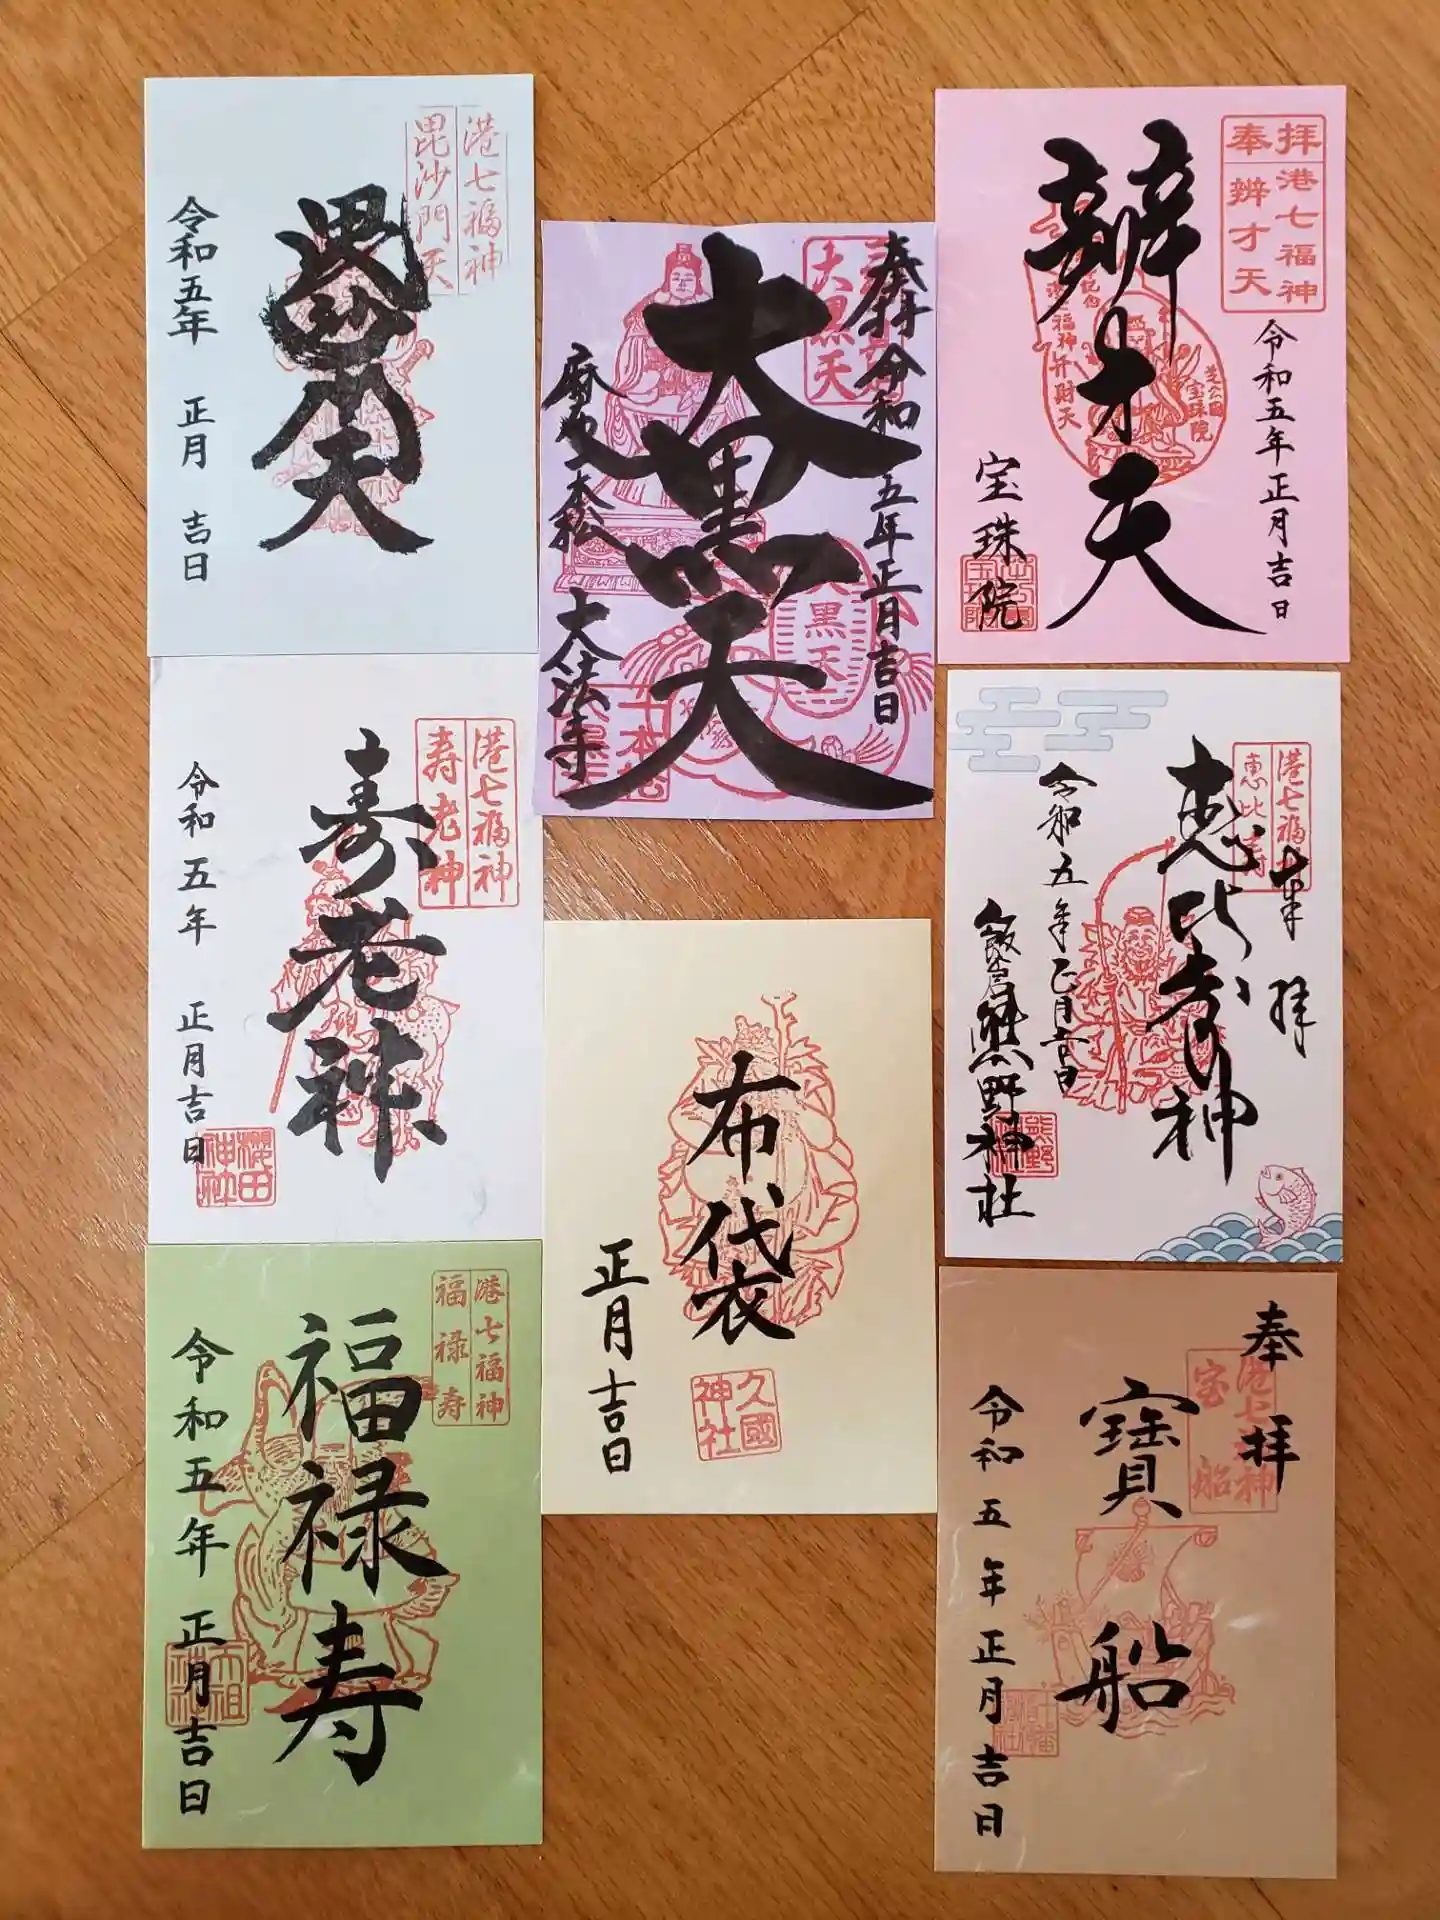 港七福神
毘沙門天
毘沙門天
令和五年 正月 吉日
奉拝 令和五年正月吉日
大黒天
大黒天
大黒天
麻布一本松 大法寺
拝 港七福神
奉 辨才天
辨才天
令和五年正月吉日
福神弁財天
芝公園
宝珠院
宝珠院
港七福神
寿老神
寿老神
令和五年 正月吉日
櫻田
神社
布袋
正月吉日
久國
神社
港七福神
恵比寿
奉拝
恵比寿神
令和五年正月吉日
飯倉 熊野神社
熊野
港七福神
福禄寿
福禄寿
令和五年 正月吉日
奉拝
港七福神
宝船
寶船
令和五年正月吉日